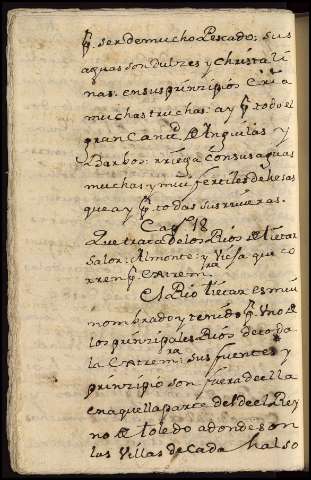 p.r ser de mucho Pescado; sus
aguas son dulzes y christali
nas: en sus prinzipios Cria
muchas truchas: ay p.r todo el
gran Canti.d de Anguilas y
Barbos: rriega con sus aguas
muchas y mui fertiles dehesas
que ay p.r todas sus riveras.
Cap.º 18
Que trata de los Rios de tietar
Salor; Almonte; y Viesa que co
rren p.r Extrem.ra
El Rio tietar es mui
nombrado y tenido p.r Uno de
los prinzipales Rios de toda
la Extrem.ra sus fuentes y
prinzipio son fuera de ella
en aquella parte del de el Rey
no de toledo adonde son
las Villas de Cada halso